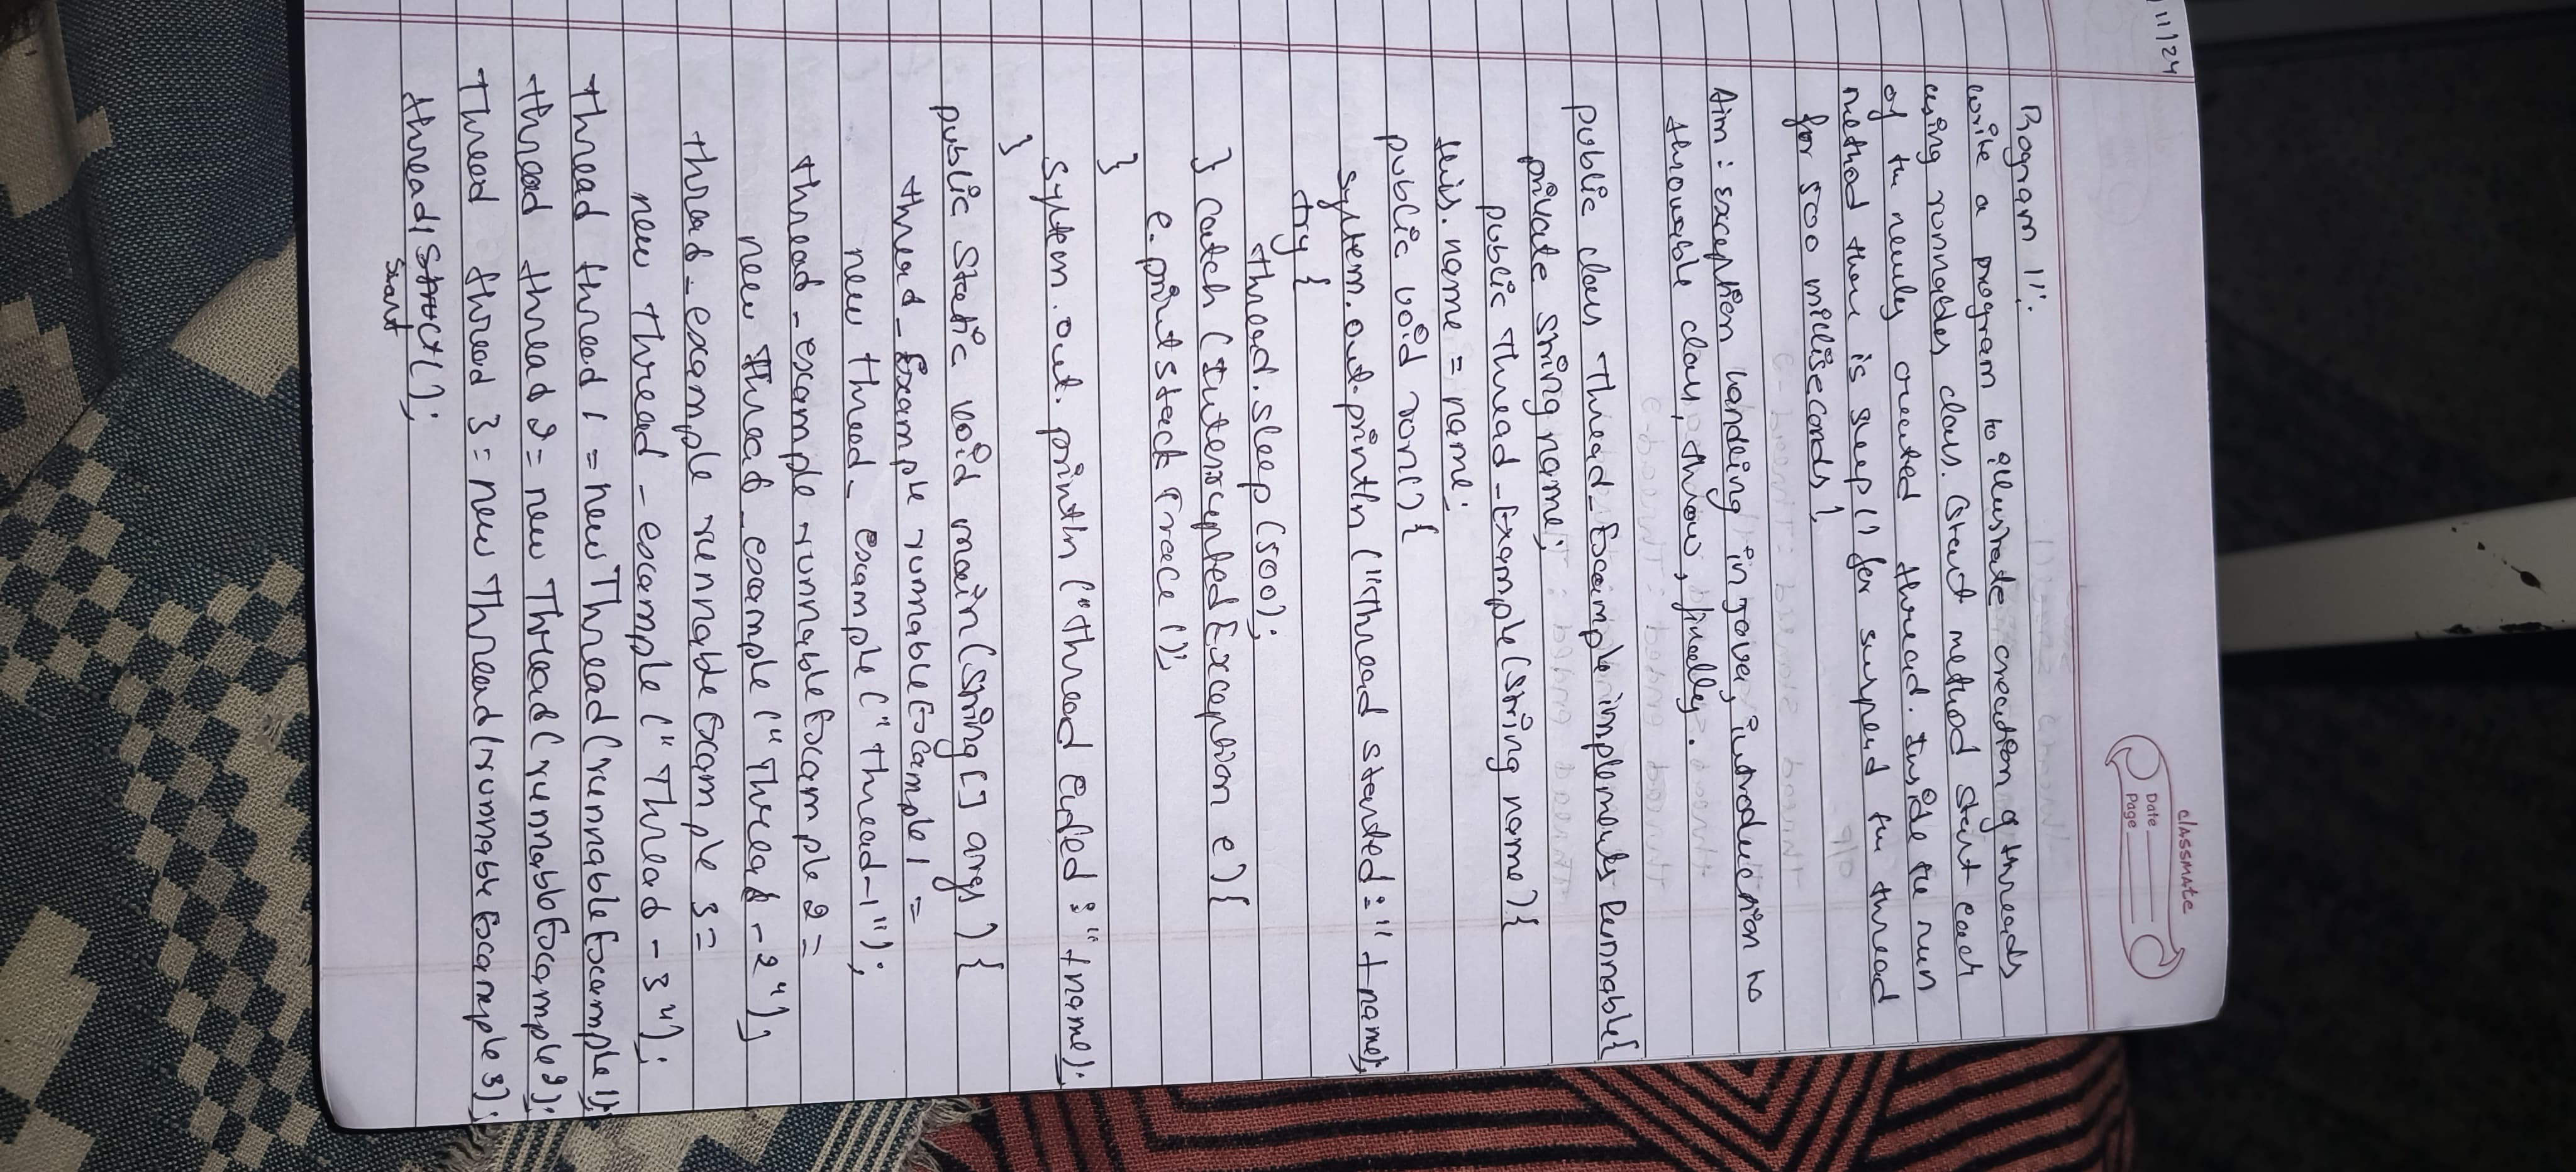 11/24
classmate
Date
Page
Program 11:
write a program to illustrate creation of threads
using runnables class. (Start method start each
of the newly created thread. Inside the run
method there is sleep() for suspend the thread
for 500 milliseconds).
Aim: Exception handling in java, introduction to
throwable class, throw, finally.
public class Thread_Example implements Runnable{
private String name;
public Thread_Example(String name){
this.name = name;
public void run(){
System.out.println("thread started:" + name);
try {
thread.sleep(500);
} catch (InterruptedException e){
e.printstackTrace();
}
System.out.println("thread ended:" + name);
}
public static void main(String[] args) {
thread_Example runnableExample1 =
new thread_example("thread-1");
thread_example runnableExample2 =
new Thread_example("Thread-2");
thread_example runnableExample3 =
new thread_example("Thread-3");
thread thread1 = new Thread(runnableExample1);
thread thread2 = new Thread(runnableExample2);
Thread thread3 = new Thread(runnableExample3);
thread1 start();